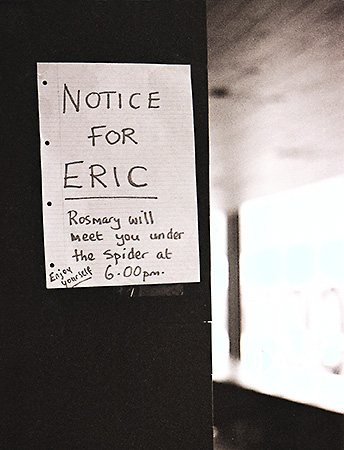 NOTICE
FOR
ERIC
Rosmary will
meet you under
the Spider at
6.00pm.
Enjoy
yourself